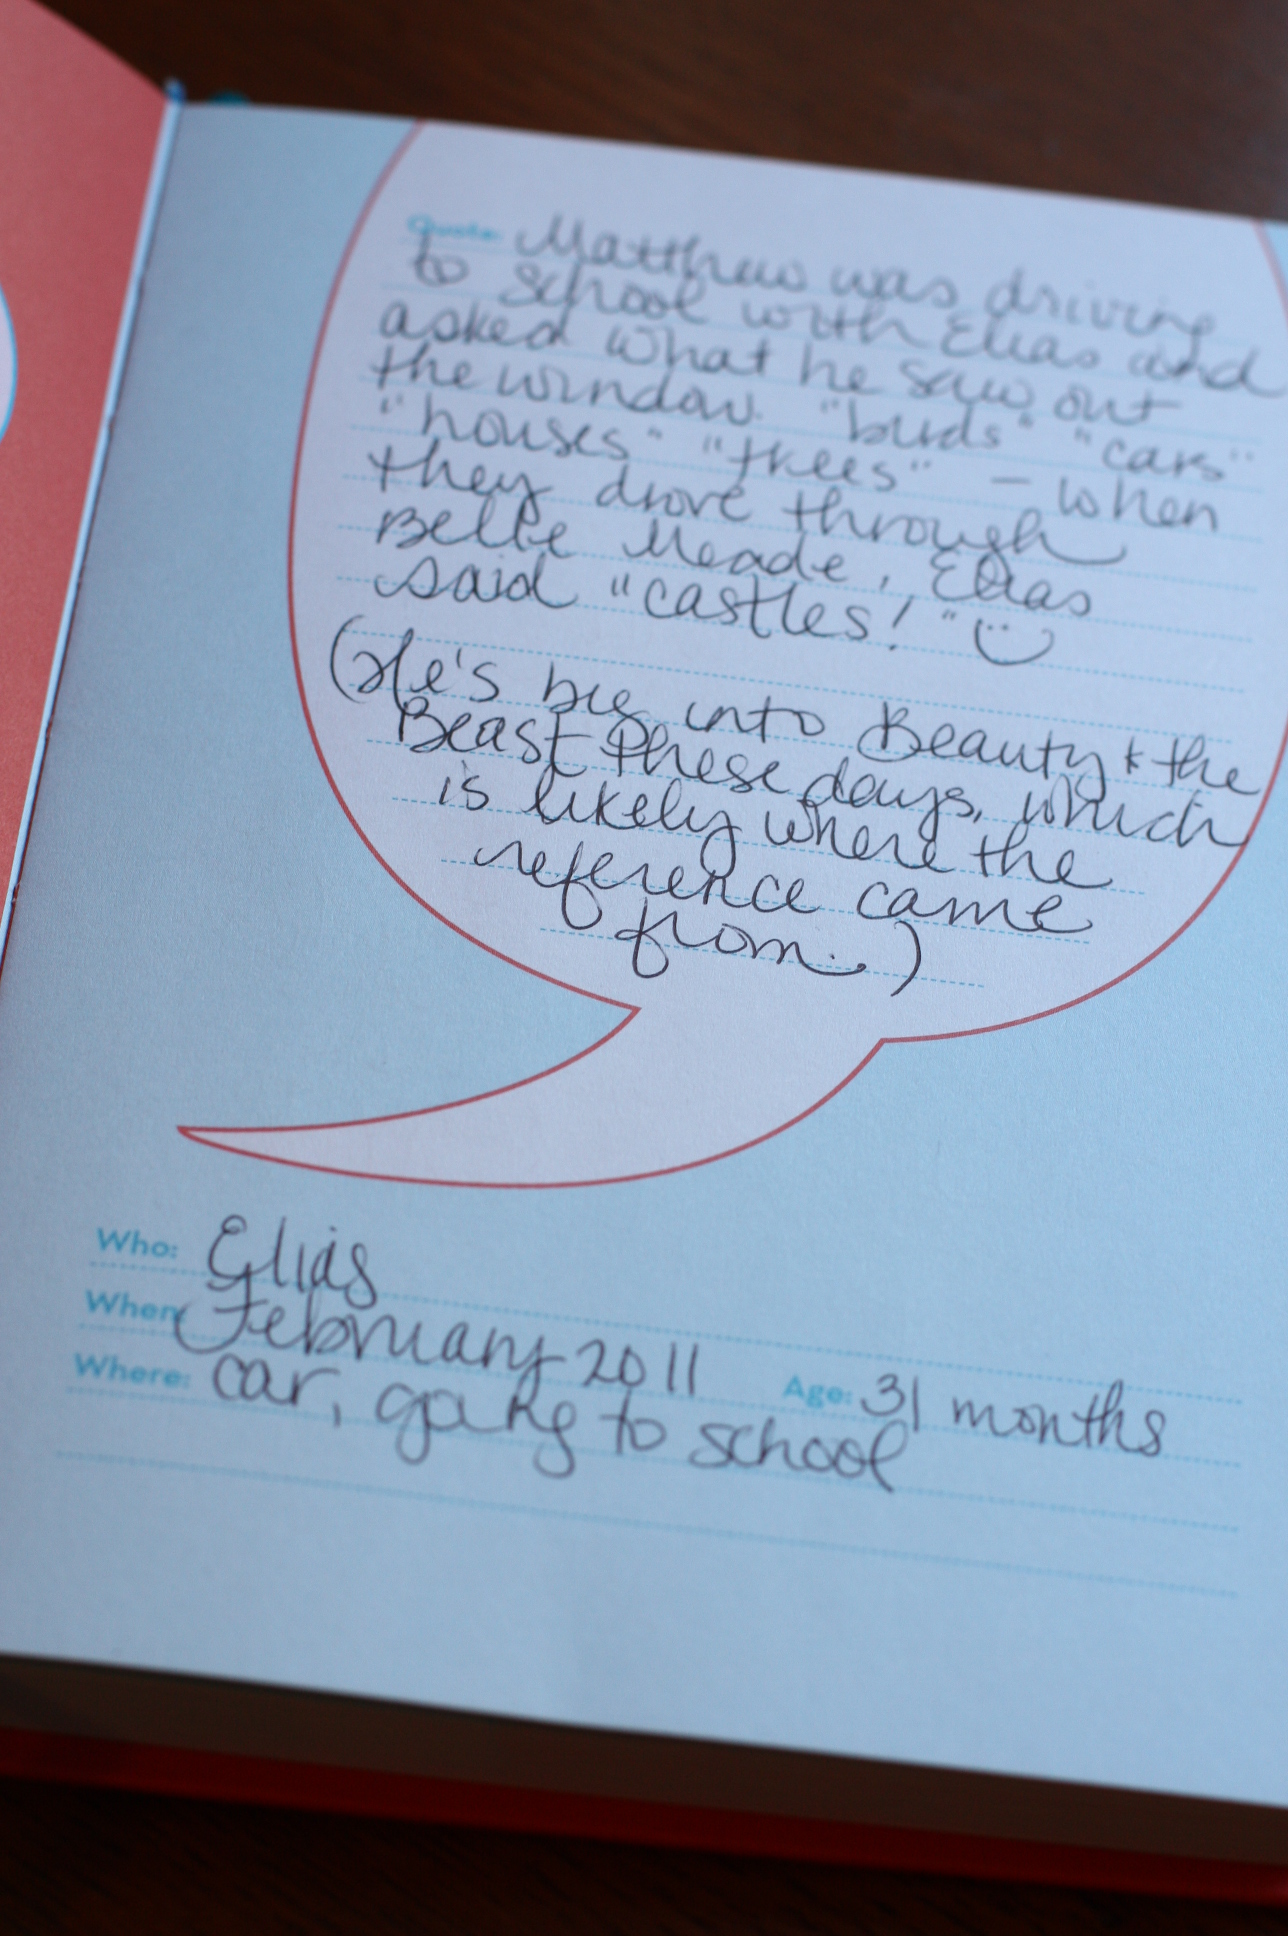 Quote: Matthew was driving
to school with Elias and
asked what he saw out
the window. "birds" "cars"
"houses" "trees" - when
they drove through
Belle Meade, Elias
said "castles!" :)
(He's big into Beauty & the
Beast these days, which
is likely where the
reference came
from.)
Who: Elias
When: February 2011 Age: 31 months
Where: car, going to school